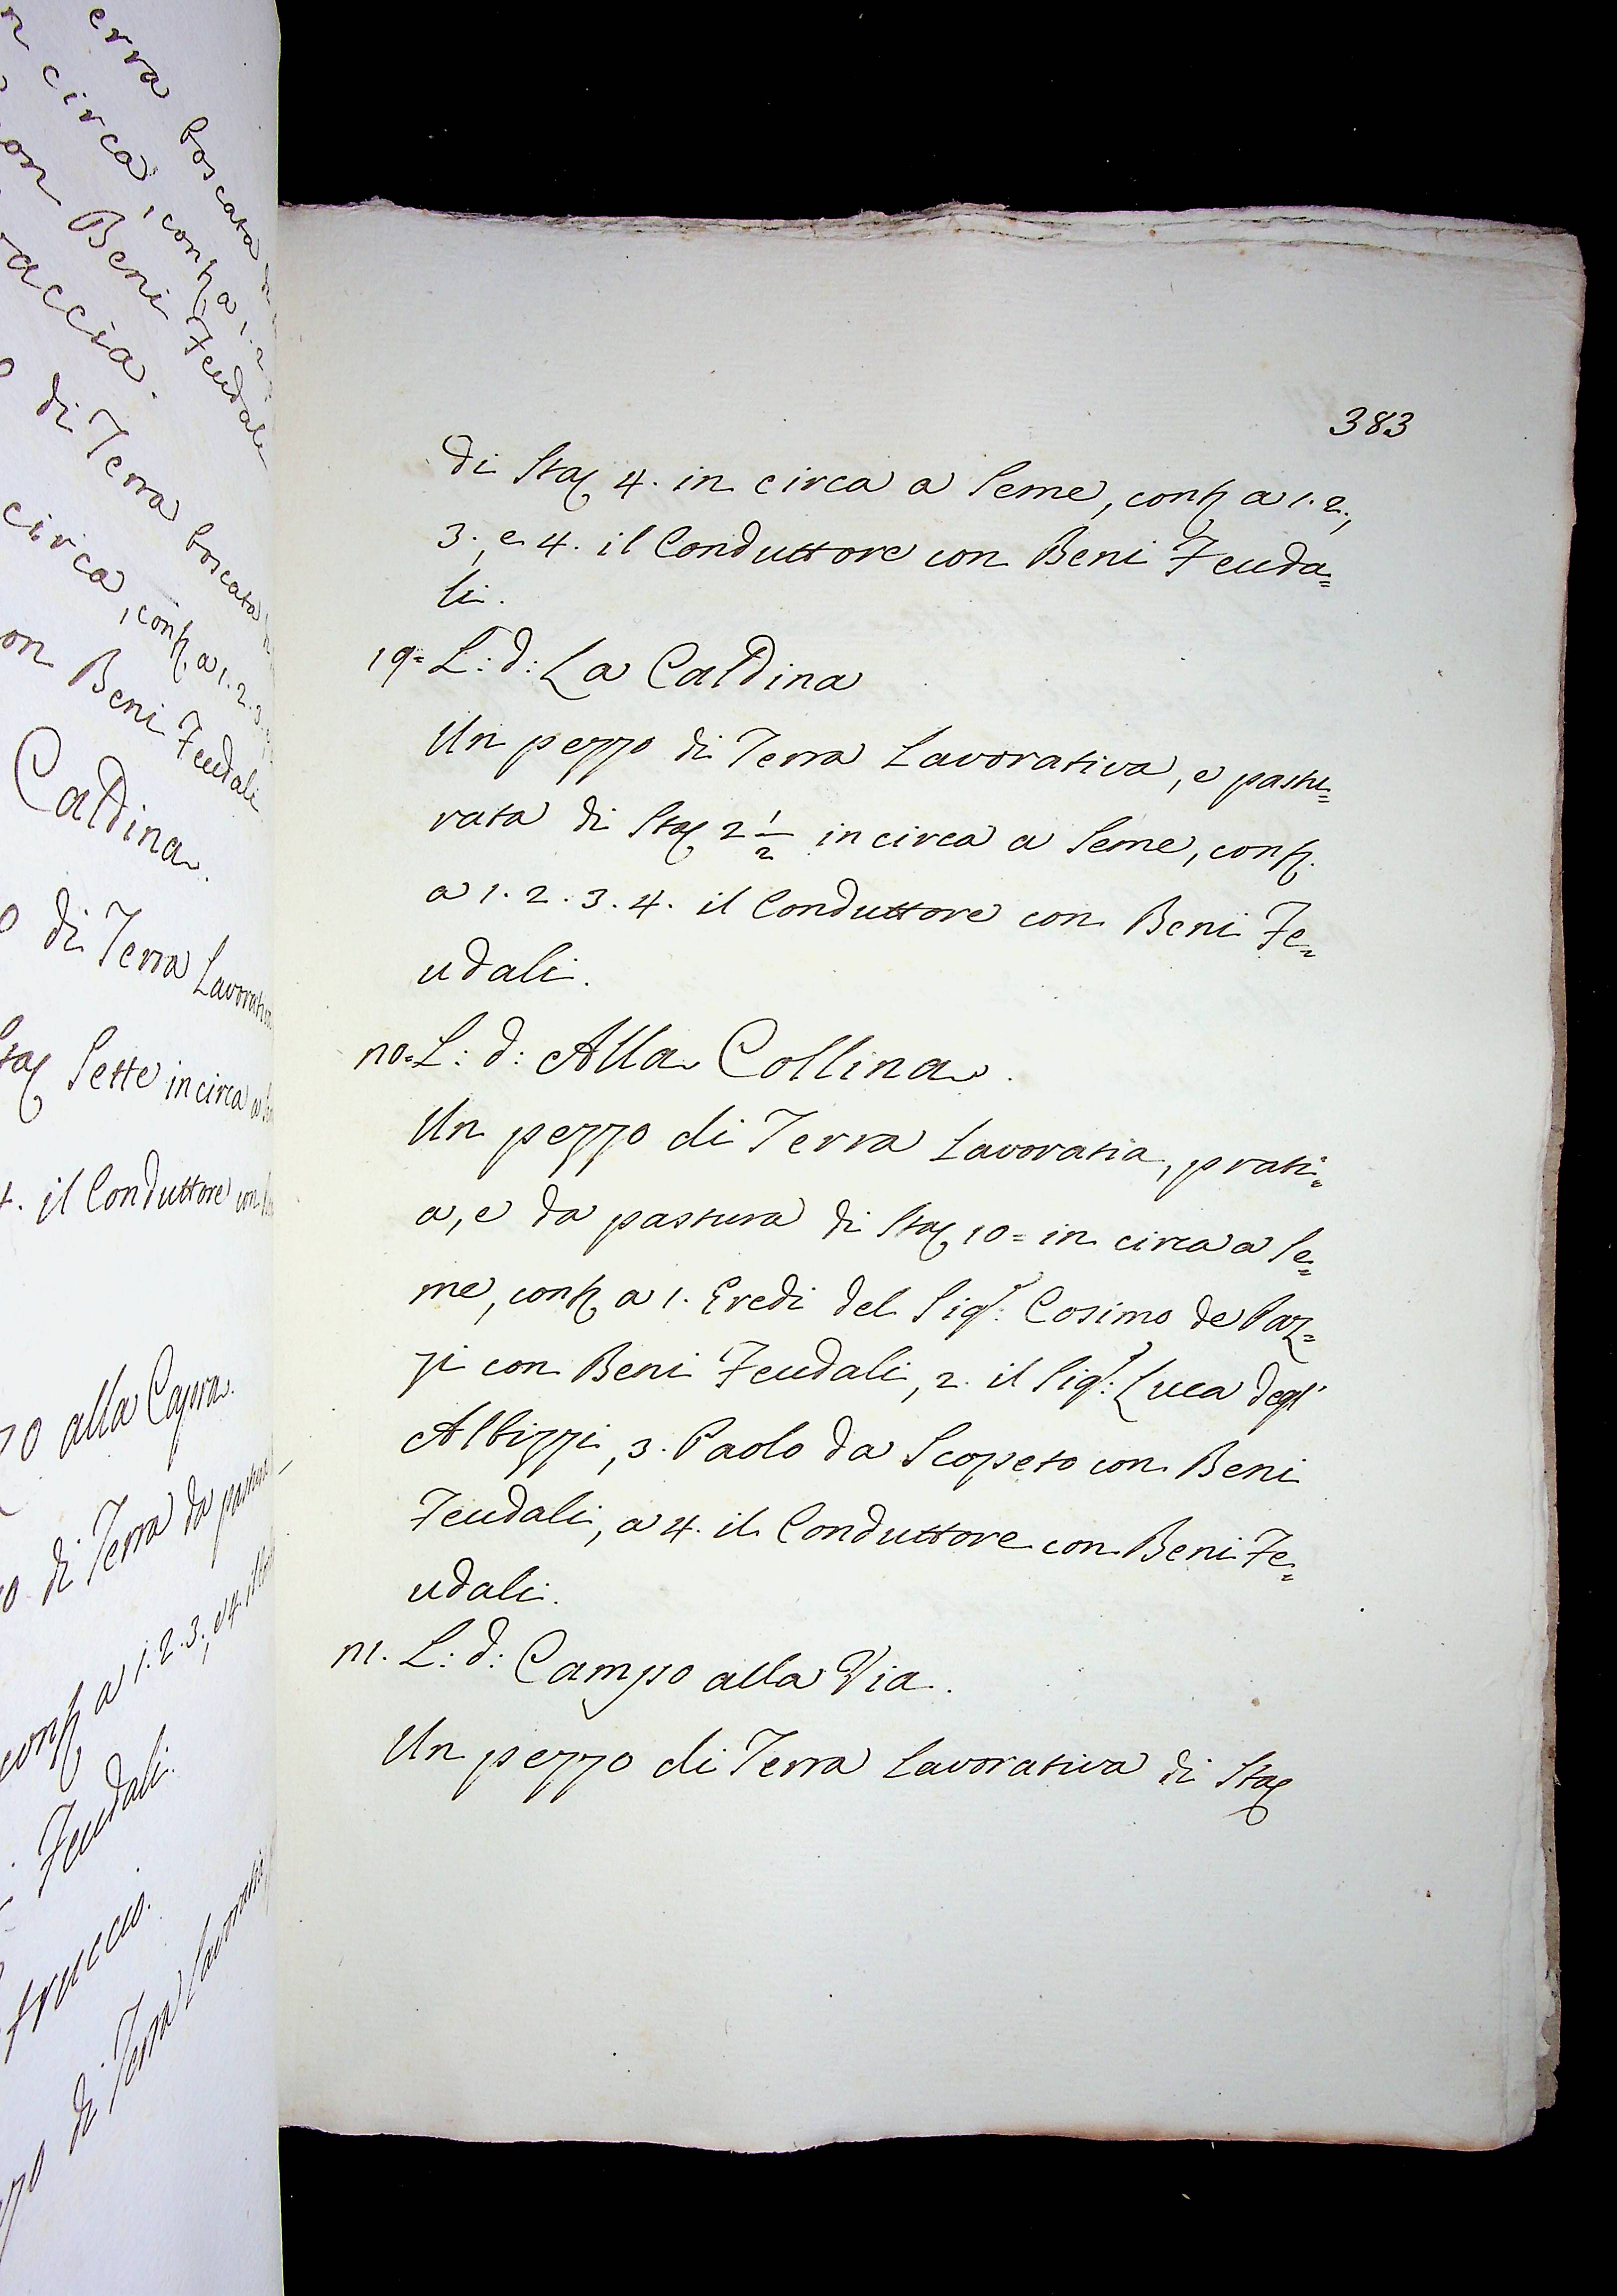 erra boscata
n circa, conf. a 1. 2
on Beni Feudali
accia.
di Terra boscata
circa, conf. a 1. 2. 3.
on Beni Feudali
Caldina.
o di Terra Lavorativa
Sta. Sette in circa a
4. il Conduttore con
o alla Capra.
o di Terra da pastura
conf. a 1. 2. 3., e 4. il
Feudali.
di Terra Lavorativa
383
di Sta. 4. in circa a Seme, conf. a 1. 2.,
3., e 4. il Conduttore con Beni Feuda=
li.
19= L: d: La Caldina
Un pezzo di Terra Lavorativa, e pastu=
rata di Sta. 2 1/2 in circa a Seme, conf.
a 1. 2. 3. 4. il Conduttore con Beni Fe=
udali.
20= L: d: Alla Collina.
Un pezzo di Terra Lavoratia, prati=
a, e da pastura di Sta. 10= in circa a Se=
me, conf. a 1. Eredi del Sigr: Cosimo de Paz=
zi con Beni Feudali, 2. il Sigr: Luca degl'
Albizzi, 3. Paolo da Scopeto con Beni
Feudali, a 4. il Conduttore con Beni Fe=
udali.
21. L: d: Campo alla Via.
Un pezzo di Terra Lavorativa di Sta.